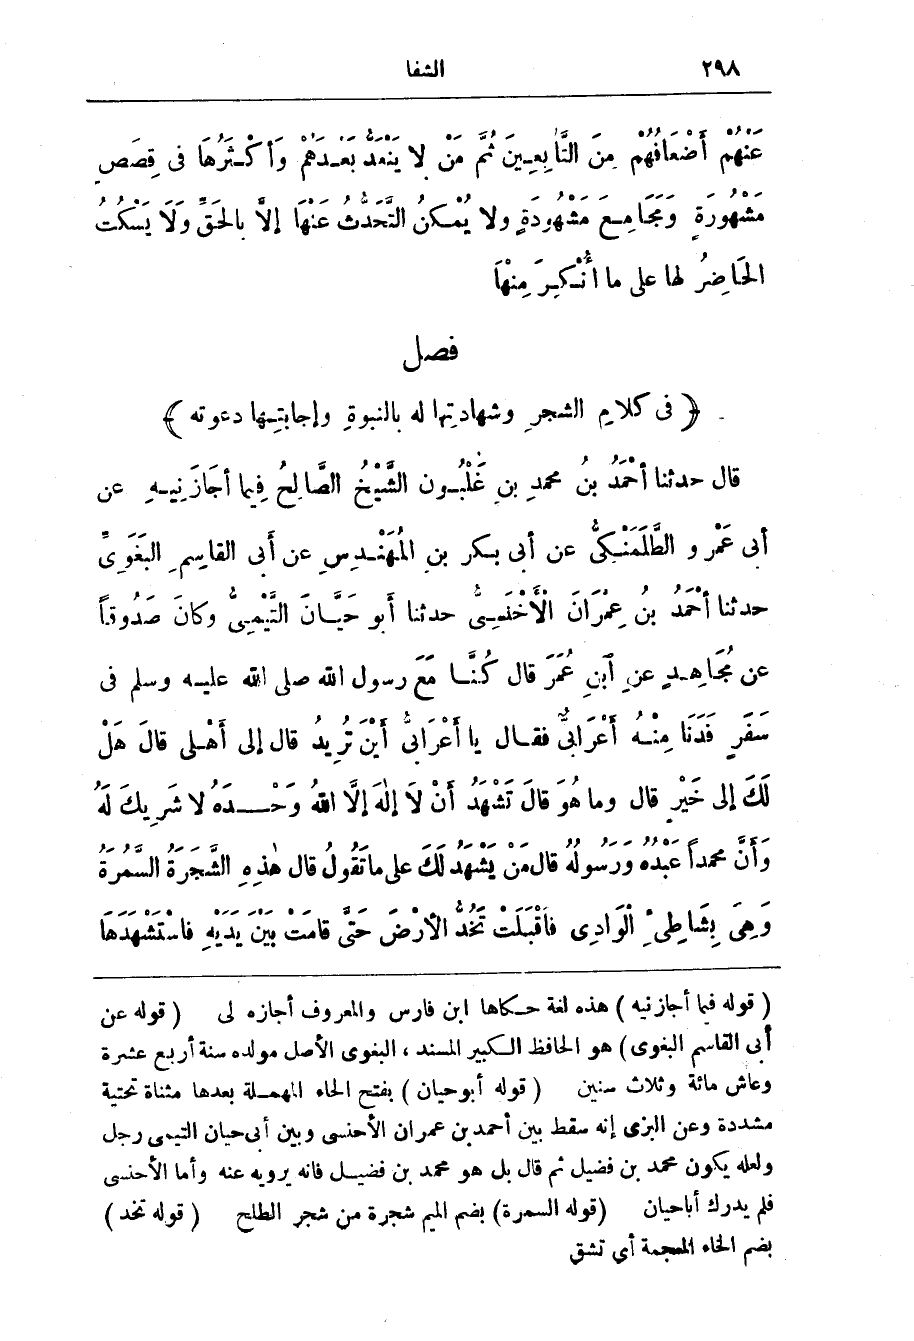 ٢٩٨ الشفا
عَنْهُمْ أَضْعَافُهُمْ مِنَ التَّابِعِينَ ثُمَّ مَنْ لا يَنْعَدُّ بَعْدَهُمْ وَأكْثَرُهَا فى قِصَصٍ
مَشْهُورَةٍ وَمَجَامِعَ مَشْهُودَةٍ ولا يُمْكِنُ التَّحَدُّثُ عَنْهَا إلَّا بِالحَقِّ وَلَا يَسْكُتُ
الحَاضِرُ لها على ما أُنْكِرَ مِنْهَا
فصل
﴿ فى كلامِ الشجرِ وشهادتِها له بالنبوةِ وإجابتِها دعوته ﴾
قال حدثنا أحْمَدُ بنُ محمدِ بنِ غَلْبُون الشَّيْخُ الصَّالِحُ فِيما أجَازَنِيهِ عن
أبى عَمْرٍ و الطَّلَمَنْكِىُّ عن أبى بكر بنِ المُهَنْدِسِ عن أَبى القاسِمِ البَغَوِىِّ
حدثنا أحْمَدُ بنُ عِمْرَانَ الْأَخْنَسِىُّ حدثنا أبو حَيَّانَ التَّيْمِىُّ وكانَ صَدُوقاً
عن مُجَاهِدٍ عنِ ابنِ عُمَرَ قال كُنَّا مَعَ رسول الله صلى الله عليه وسلم فى
سَفَرٍ فَدَنَا مِنْهُ أَعْرَابىٌّ فقال يا أَعْرَابىُّ أَيْنَ تُرِيدُ قال إلى أَهْلى قالَ هَلْ
لَكَ إلى خَيْرٍ قال وما هُوَ قالَ تَشْهَدُ أَنْ لَا إلهَ إلَّا اللهُ وَحْدَهُ لا شَرِيكَ لَهُ
وَأَنَّ محمداً عَبْدُهُ وَرَسُولُهُ قال مَنْ يَشْهَدُ لَكَ على ما تَقُولُ قال هٰذِهِ الشَّجَرَةُ السَّمُرَةُ
وَهِىَ بِشَاطِئِ الْوَادِى فأقْبَلَتْ تَخُدُّ الأرْضَ حَتَّى قامَتْ بَيْنَ يَدَيْهِ فاسْتَشْهَدَهَا
( قوله فيما أجازنيه ) هذه لغة حكاها ابن فارس والمعروف أجازه لى ( قوله عن
أبى القاسم البغوى ) هو الحافظ الكبير المسند ، البغوى الأصل مولده سنة أربع عشرة
وعاش مائة وثلاث سنين ( قوله أبو حيان ) بفتح الحاء المهملة بعدها مثناة تحتية
مشددة وعن البزى إنه سقط بين أحمد بن عمران الأخنسى وبين أبى حيان التيمى رجل
ولعله يكون محمد بن فضيل ثم قال بل هو محمد بن فضيل فانه يرويه عنه وأما الأخنسى
فلم يدرك أباحيان (قوله السمرة) بضم الميم شجرة من شجر الطلح ( قوله تخد )
بضم الخاء المعجمة أي تشق